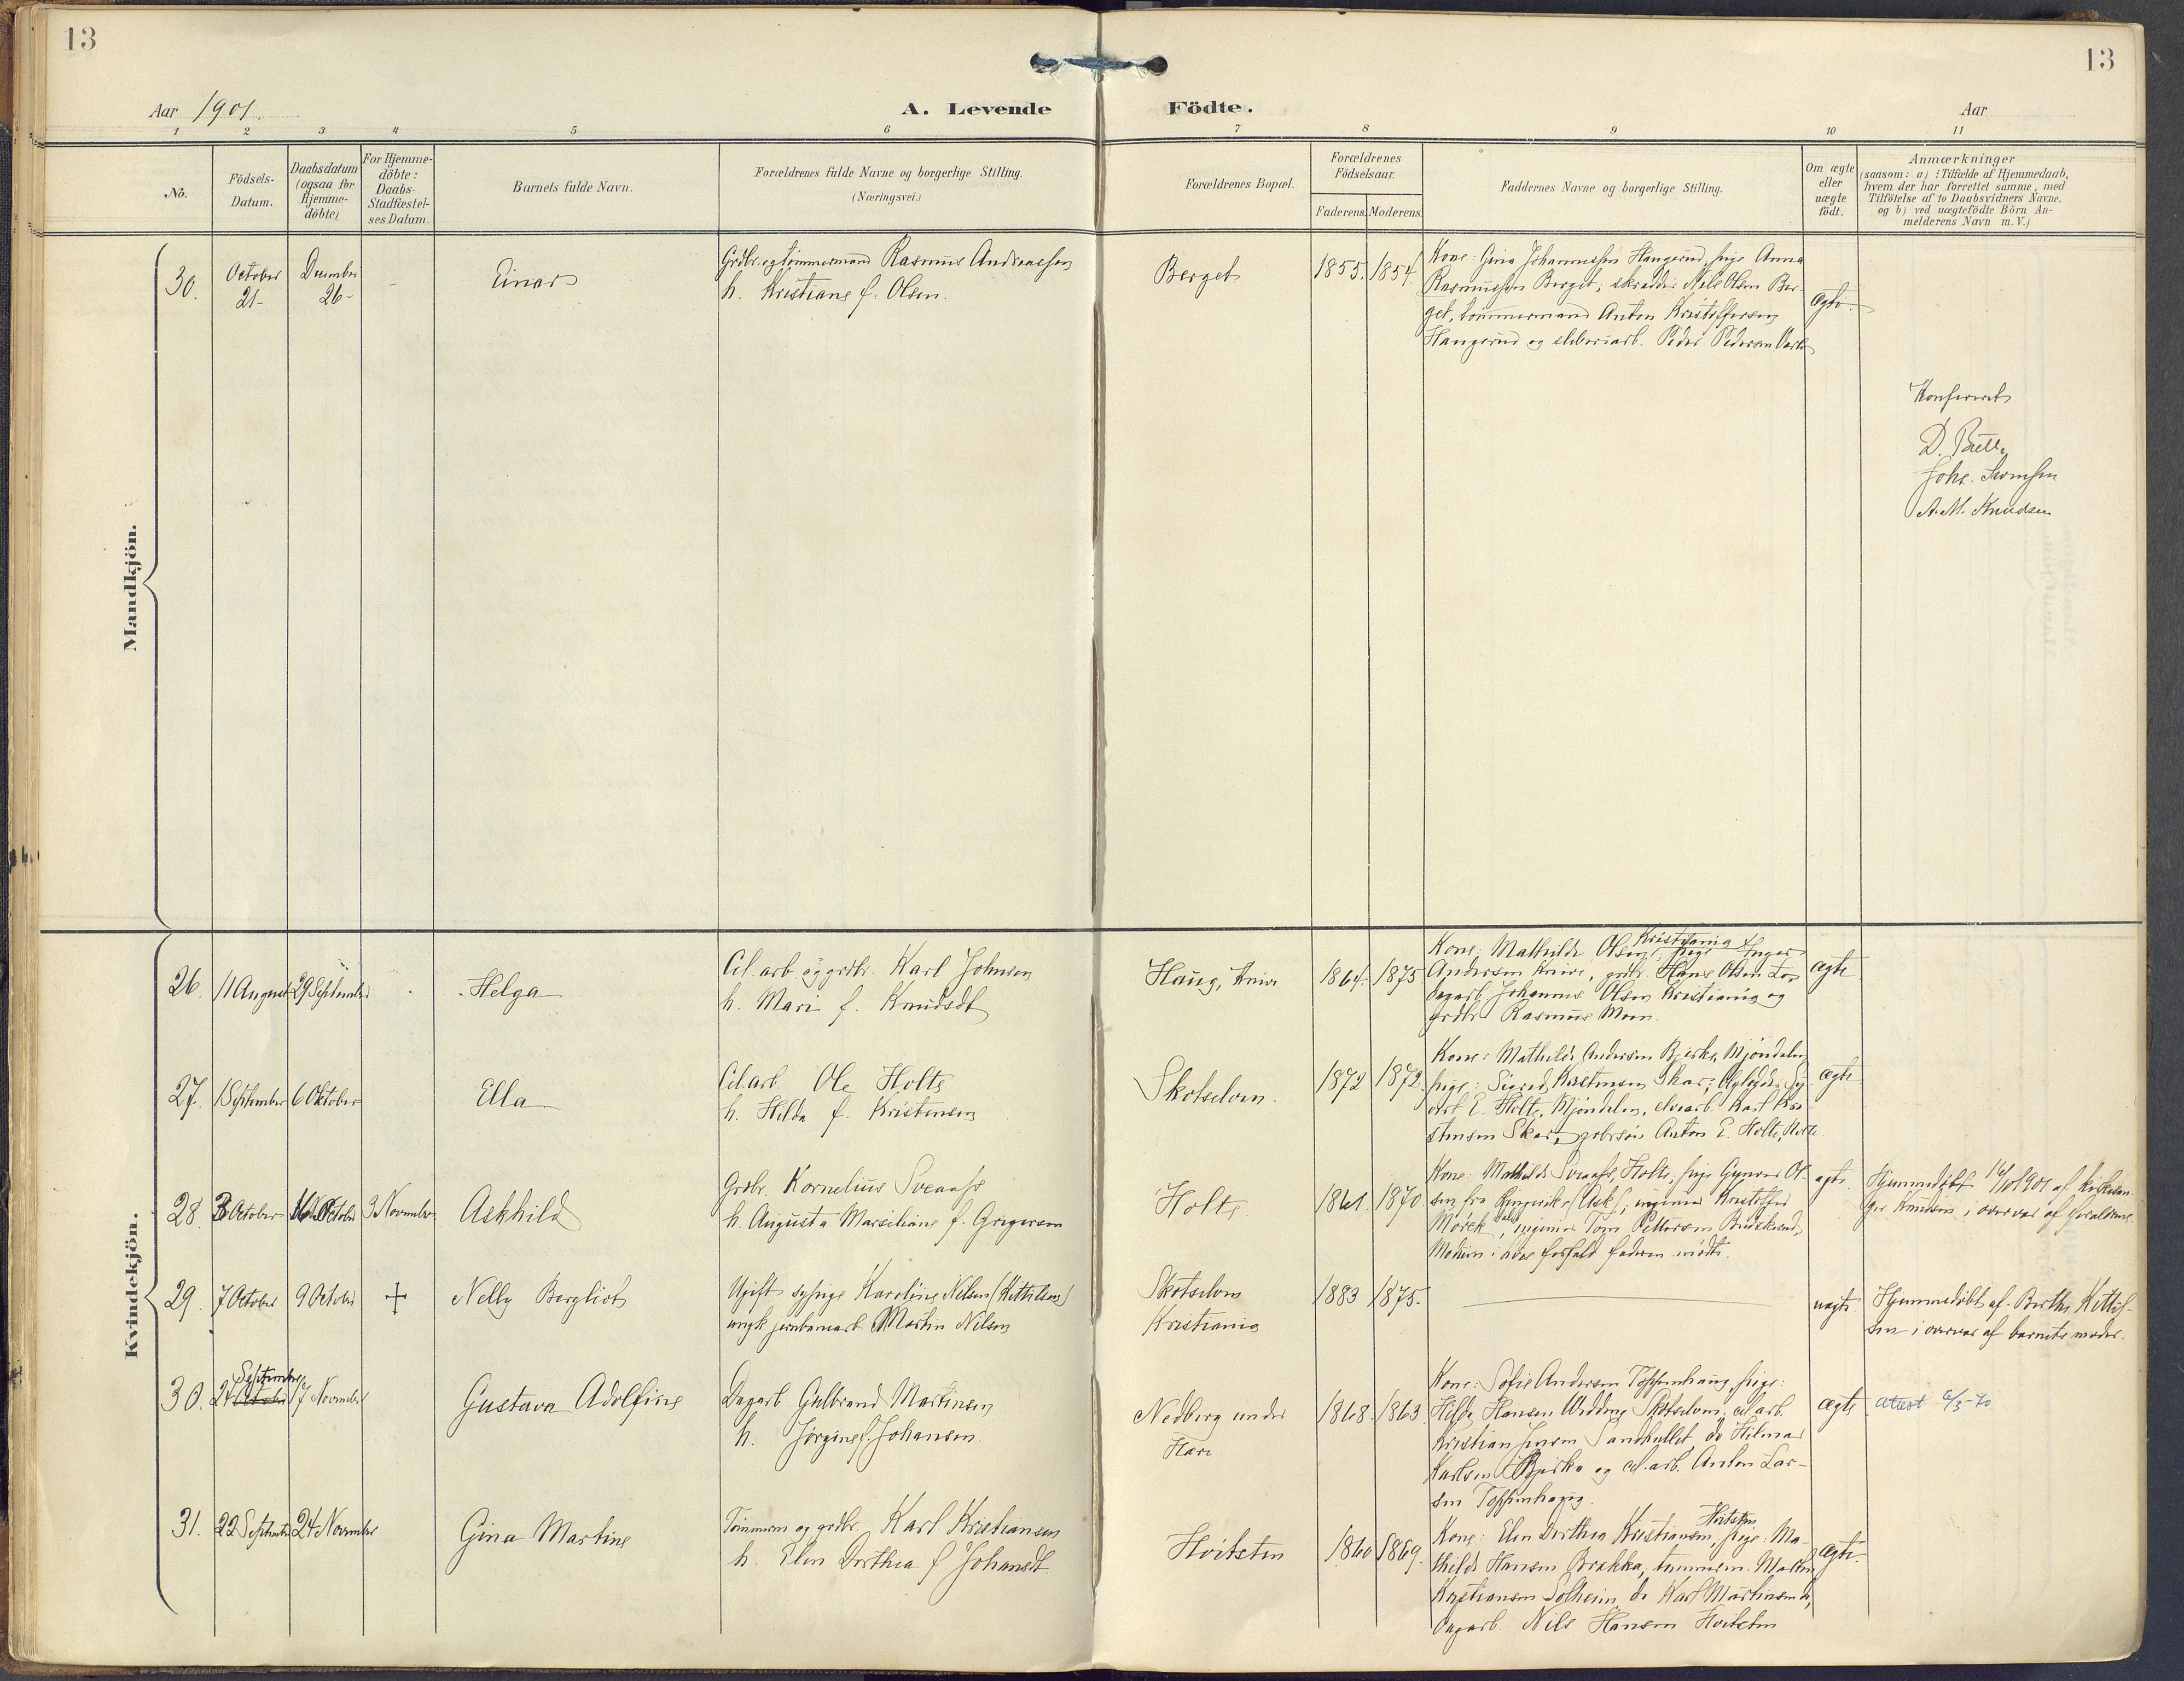 13
13
Aar 1901.
A. Levende Födte.
Aar
1 2 3 4 5 6 7 8 9 10 11
No.
Födsels-
Datum.
Daabsdatum
(ogsaa for
Hjemme-
döbte)
For Hjemme-
döbte:
Daabs-
Stadfæstel-
ses Datum.
Barnets fulde Navn.
Forældrenes fulde Navne og borgerlige Stilling.
(Næringsvei.)
Forældrenes Bopæl.
Forældrenes
Födselsaar.
Faderens. Moderens.
Faddernes Navne og borgerlige Stilling.
Om ægte
eller
uægte
födt.
Anmærkninger
(saasom: a) : Tilfælde af Hjemmedaab,
hvem der har forrettet samme, med
Tilföielse af to Daabsvidners Navne.
og b) ved uægtefödte Börn An-
melderens Navn m.V.)
Mandkjön.
30.
October
21-
December
26-
Einar
Grdbr. og tömmermand Rasmus Andreassen
h. Kristiane f. Olsen.
Berget
1855. 1854.
Kone: Gina Johannessen Haugerud, pige Anna
Rasmussen Berget; skrædder Nils Olsen Ber-
get, tömmermand Anton Kristoffersen
Haugerud og sliberiarb. Peder Pedersen
ægte.
Konfereret
D.
Johs.
A.M. Knudsen
Kvindekjön.
26. 11 August 29 September
Helga
Cel. arb. og grdbr. Karl Johnsen
h. Mari f. Knudsdt
Haug,
1864. 1875
Kone: Mathilde Olsen Kristiania, pige Inga
Andersen, grdbr. Hans Olsen
dagarb. Johannes Olsen Kristiania og
grdbr. Rasmus Moen.
ægte
27. 1 September 6 Oktober
Ella
Cel. arb. Ole Holte
h. Hilda f. Kristensen
Skotselven.
1872 1872
Kone: Mathilde Andersen Bjerke, Mjöndalen,
pige: Sigrid Kristensen Skar;
E. Holte, Mjöndalen, Karl Kri-
stensen Skar, grbrsön Anton E. Holte, Holte
ægte
28. 3 October 16 October 3 November
Askhild
Grdbr. Kornelius Sveaass
h. Augusta Marseliane f. Grigersen
Holte
1861. 1870
Kone: Mathilde Sveaass, Holte, pige Gunvor Ol-
sen fra Ringerike (Ask), ingeniör Kristoffer
Mörch, ingeniör Tom Pettersen Buskerud,
Modum i hvis forfald faderen mödte.
ægte.
Hjemmedöbt 16/10 1901 af kirkesan-
ger Knudsen i overvær af forældrene.
29. 7 October 9 October +
Nelly Bergliot
Ugift sypige Karoline Nilsen (Kittilsen)
ungk. jernbanearb. Martin Nilsen
Skotselven
Kristiania
1883 1875.
uægte
Hjemmedöbt af Berthe Kittil-
sen i overvær af barnets moder.
30. 24 September 17 November
Gustava Adolfine
Dagarb. Gulbrand Martinsen
h. Jörgine f. Johansen.
Nedberg under
Hare
1868. 1863.
Kone: Sofie Andersen Toppenhaug, pige:
Hilda Hansen Skotselven, cel. arb.
Kristian Jensen Sandhullet, do Hilmar
Karlsen Bjerke og cel. arb. Anton Lar-
sen Toppenhaug.
ægte
attest 6/3-70
31. 22 September 24 November
Gina Martine
Tömmerm. og grdbr. Karl Kristiansen
h. Elen Dorthea f. Johansdt
Hvitsten
1860 1869.
Kone: Elen Dorthea Kristiansen, Hvitsten, pige: Ma-
thilde Hansen Brækka, tömmerm. Martin
Kristiansen Solheim, do Karl Martinsen do,
dagarb. Nils Hansen Hvitsten
ægte.